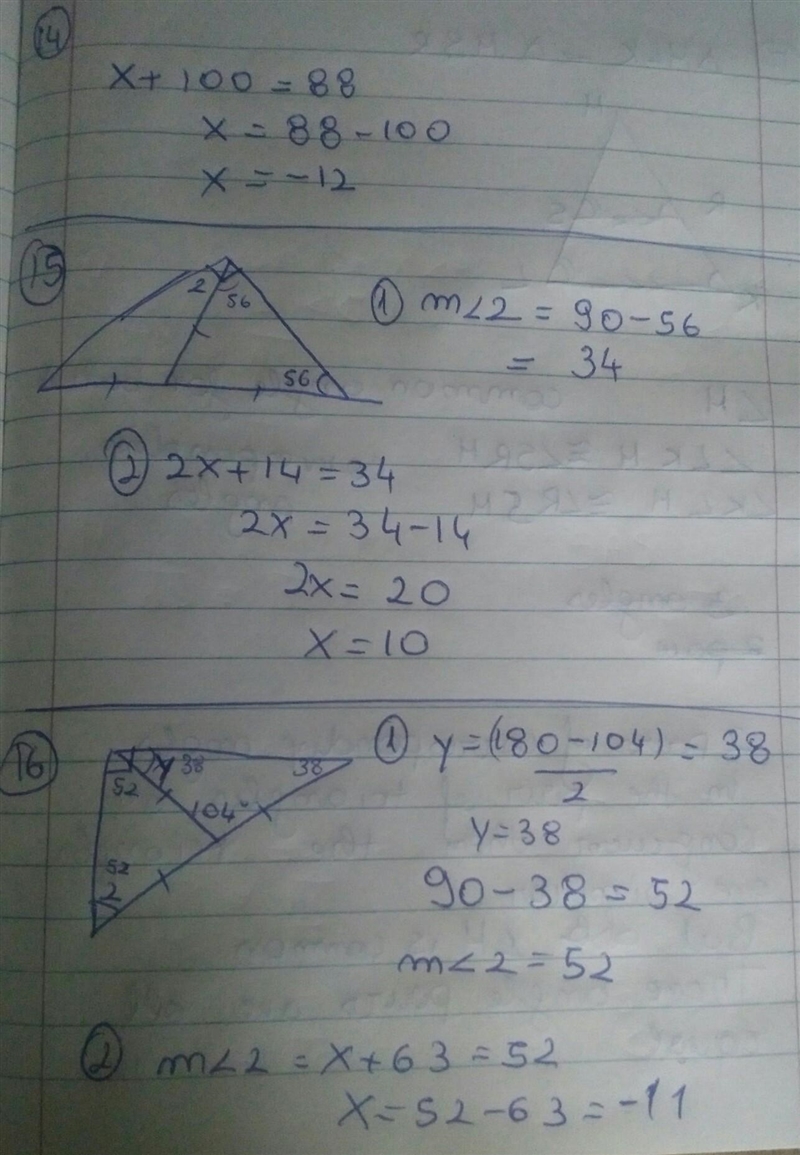 14
x + 100 = 88
x = 88 - 100
x = -12
15
2
56
56
① m∠2 = 90 - 56
= 34
② 2x + 14 = 34
2x = 34 - 14
2x = 20
x = 10
16
y 38
38
52
104°
52
2
① y = (180 - 104) / 2 = 38
y = 38
90 - 38 = 52
m∠2 = 52
② m∠2 = x + 63 = 52
x = 52 - 63 = -11